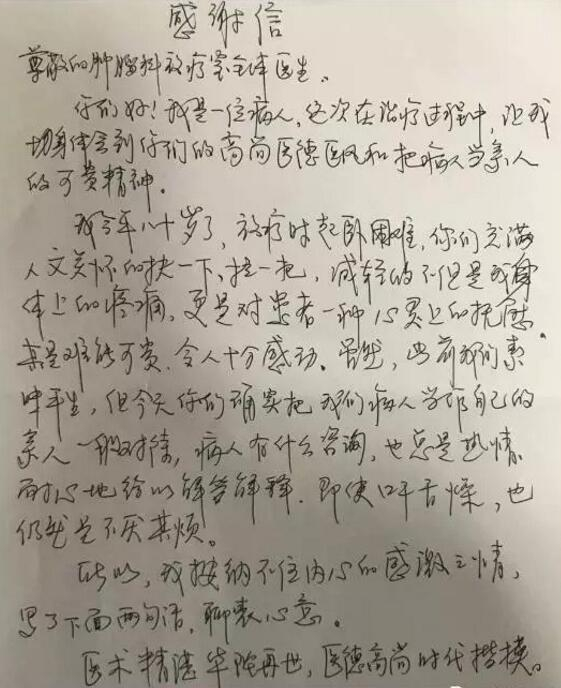 感谢信
尊敬的肿瘤科放疗室全体医生.
你们好!我是一位病人,这次在治疗过程中,让我
切身体会到你们的高尚医德医风和把病人当亲人
的可贵精神.
我今年八十岁了,放疗时起卧困难,你们充满
人文关怀的扶一下、拉一把,减轻的不但是我身
体上的疼痛,更是对患者一种心灵上的抚慰.
真是难能可贵.令人十分感动.虽然,此前我们素
昧平生,但今天你们确实把我们病人当邦自己的
亲人一般对待,病人有什么咨询,也总是热情
耐心地给以解答解释.即使口干舌燥,也
仍然是不厌其烦。
所以,我按纳不住内心的感激之情,
写了下面两句话,聊表心意.
医术精湛华陀再世,医德高尚时代楷模。